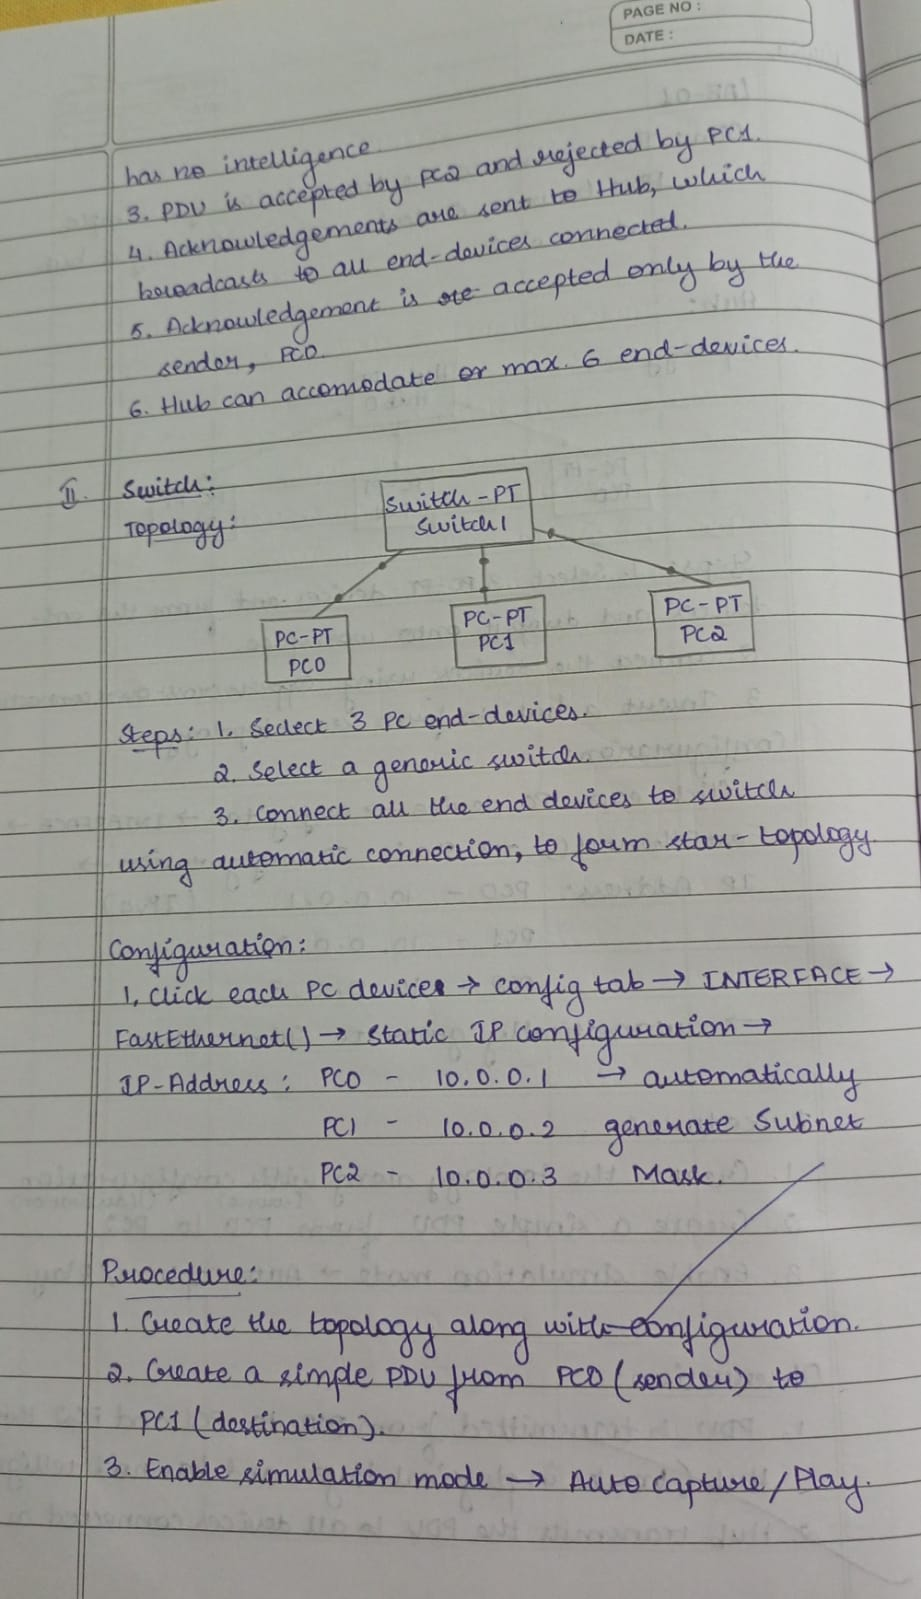 PAGE NO :
DATE :
has no intelligence
3. PDU is accepted by PC2 and rejected by PC1.
4. Acknowledgements are sent to Hub, which
broadcasts to all end-devices connected.
5. Acknowledgement is accepted only by the
sender, PC0.
6. Hub can accomodate or max. 6 end-devices.
II. Switch:
Topology:
Switch-PT
Switch1
PC-PT
PC0
PC-PT
PC1
PC-PT
PC2
Steps: 1. Seclect 3 PC end-devices.
2. Select a generic switch.
3. Connect all the end devices to switch
using automatic connection, to form star-topology.
Configuration:
1. Click each PC devices → config tab → INTERFACE →
FastEthernet() → Static IP configuration →
IP-Address: PC0 - 10.0.0.1 → automatically
PC1 - 10.0.0.2 generate Subnet
PC2 - 10.0.0.3 Mask.
Procedure:
1. Create the topology along with configuration.
2. Create a simple PDU from PC0 (sender) to
PC1 (destination).
3. Enable simulation mode → Auto capture/Play.